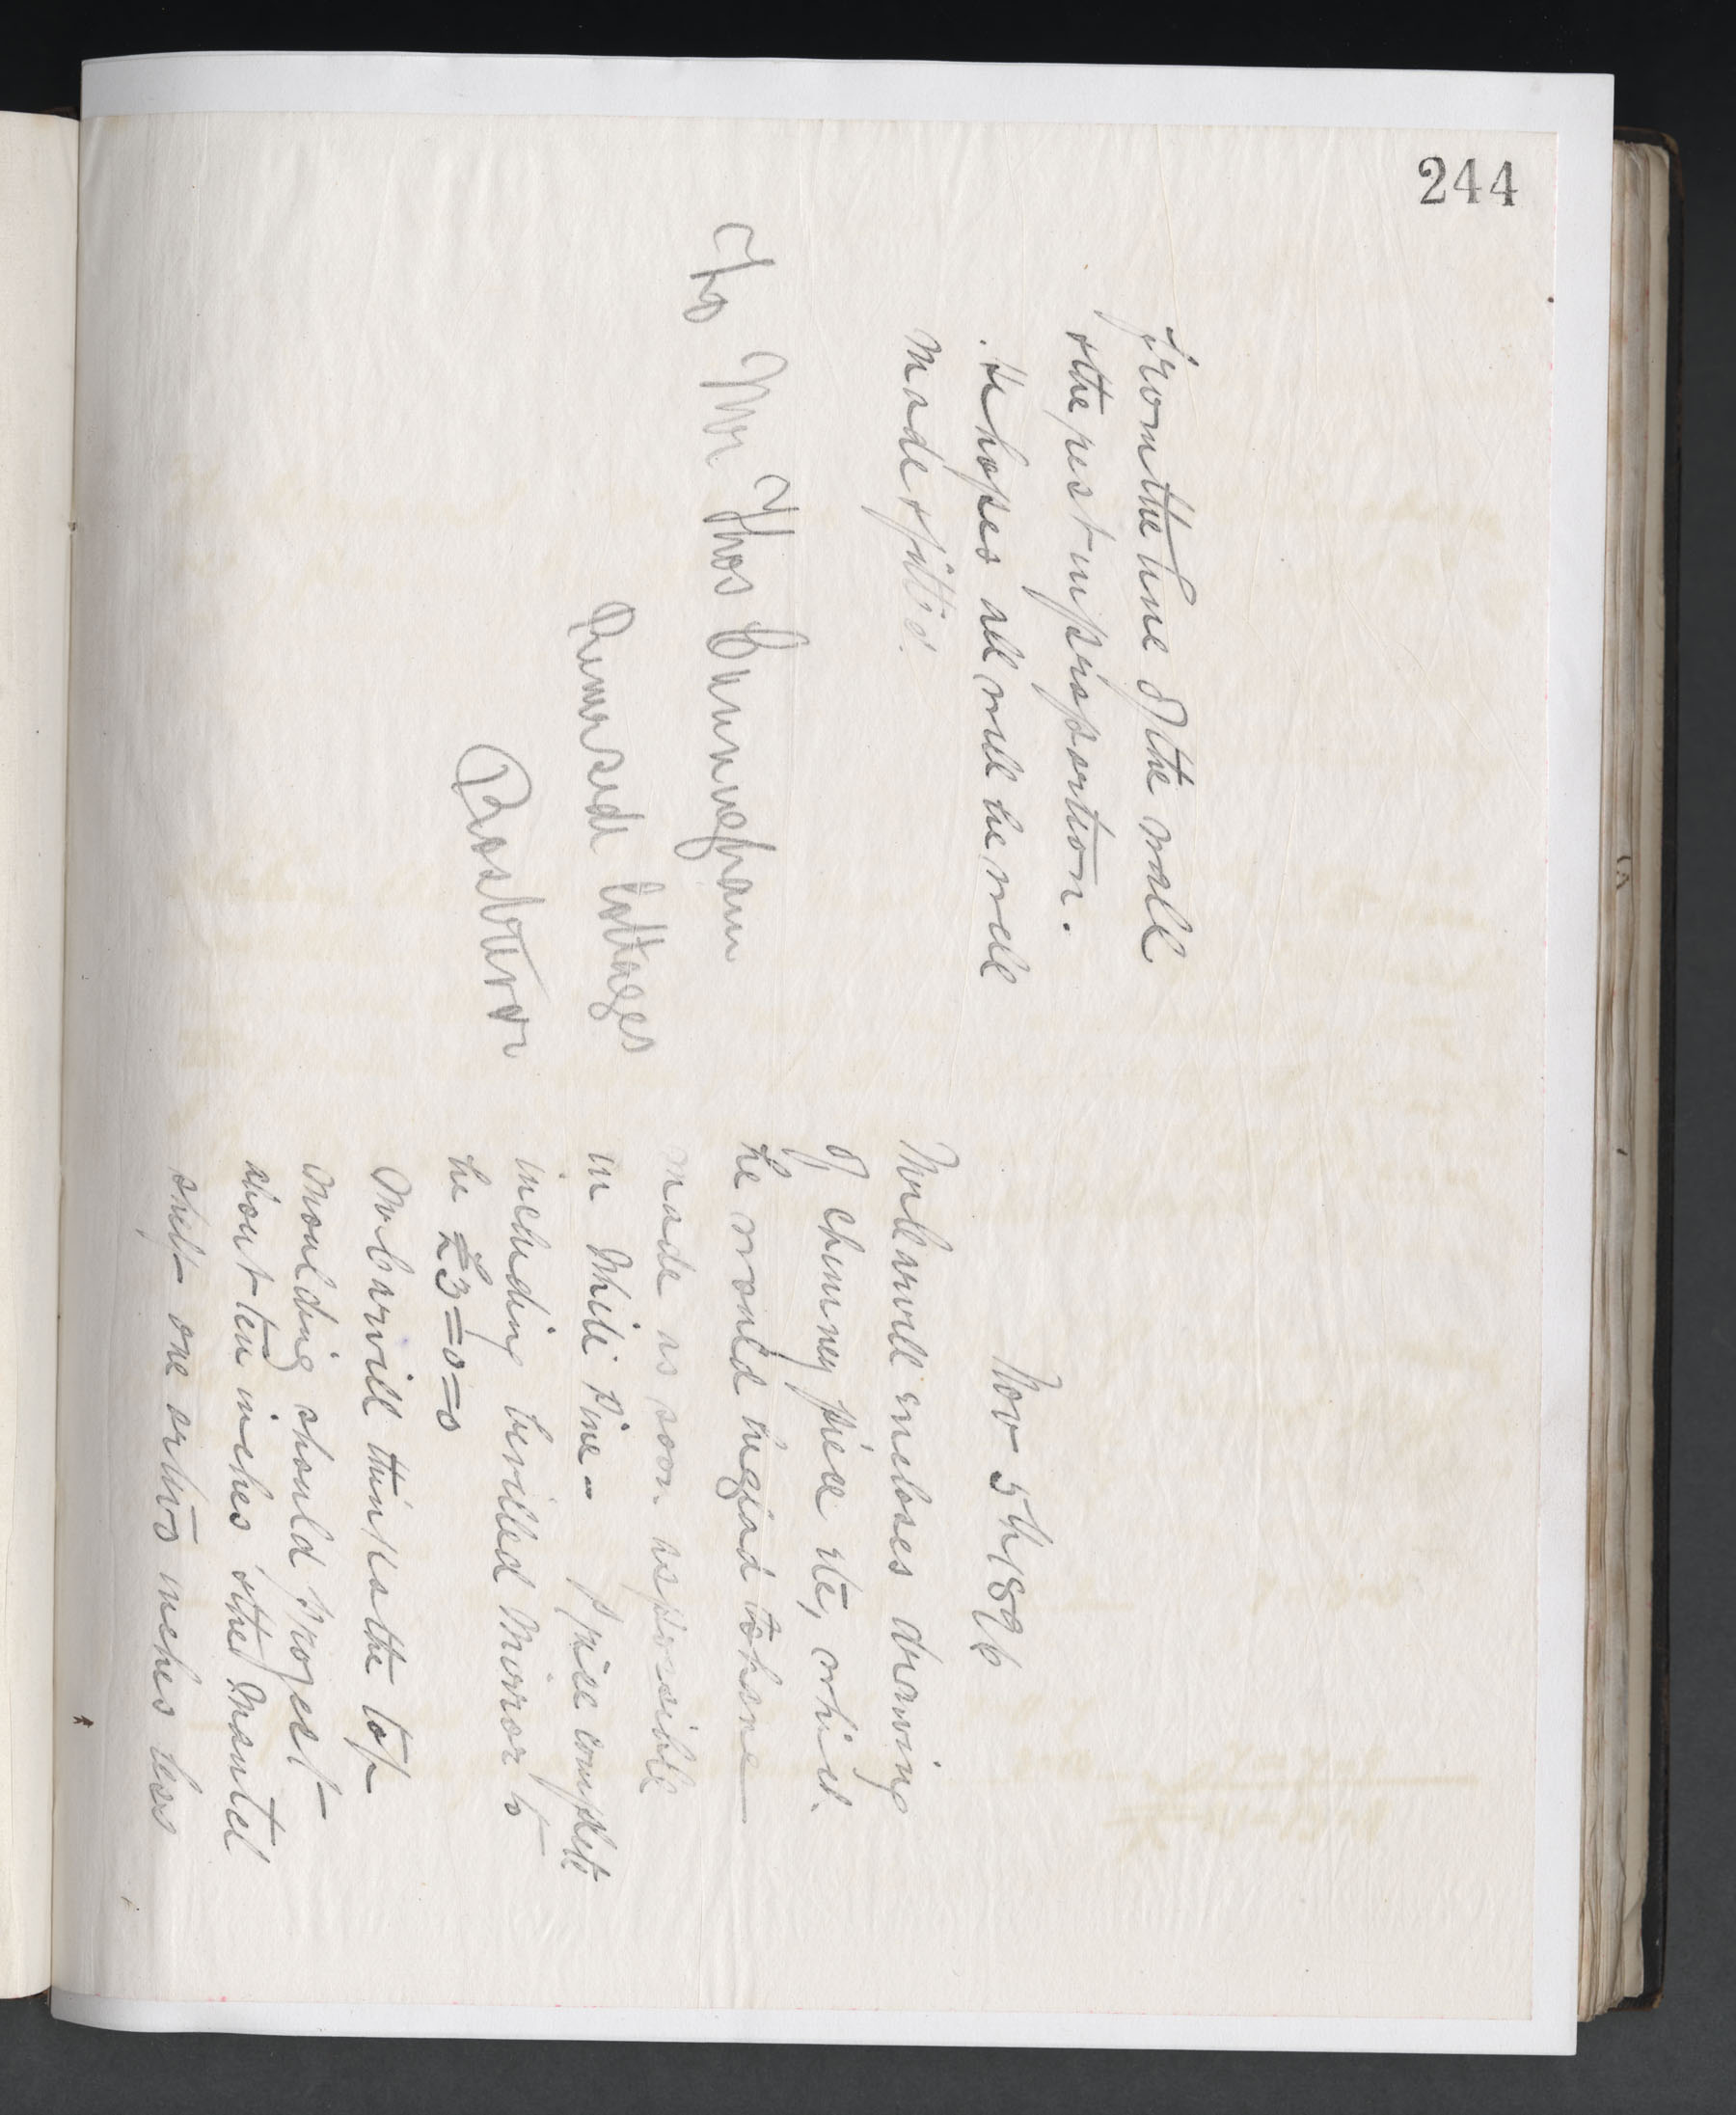 244
Nov 5th 1896
Mr Carvill encloses drawing
of chimney piece etc, which
he would be glad to have
made as soon as possible
in White Pine - Price complete
including bevilled Mirror to
be £3=0=0
Mr Carvill thinks the top
Moulding should project
about ten inches & the Mantel
shelf one or two inches less
from the line of the wall
& the rest in proportion.
He hopes all will be well
made & fitted.
To Mr Thos Cunningham
Riverside Cottages
Rostrevor